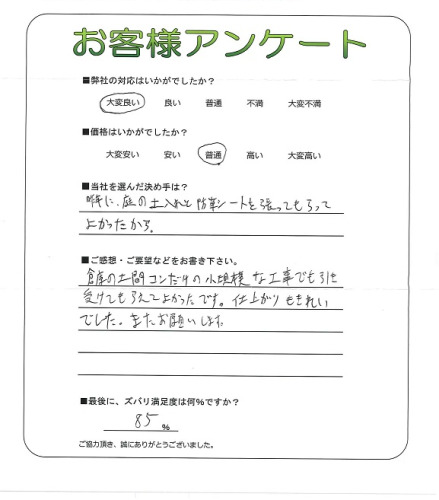 お客様アンケート
■弊社の対応はいかがでしたか?
大変良い 良い 普通 不満 大変不満
■価格はいかがでしたか?
大変安い 安い 普通 高い 大変高い
■当社を選んだ決め手は?
昨年に、庭の土入れと防草シートを張ってもらって
よかったから。
■ご感想・ご要望などをお書き下さい。
倉庫の土間コンだけの小規模な工事でも引き
受けてもらえてよかったです。仕上がりもきれい
でした。またお願いします。
■最後に、ズバリ満足度は何%ですか?
85%
ご協力頂き、誠にありがとうございました。